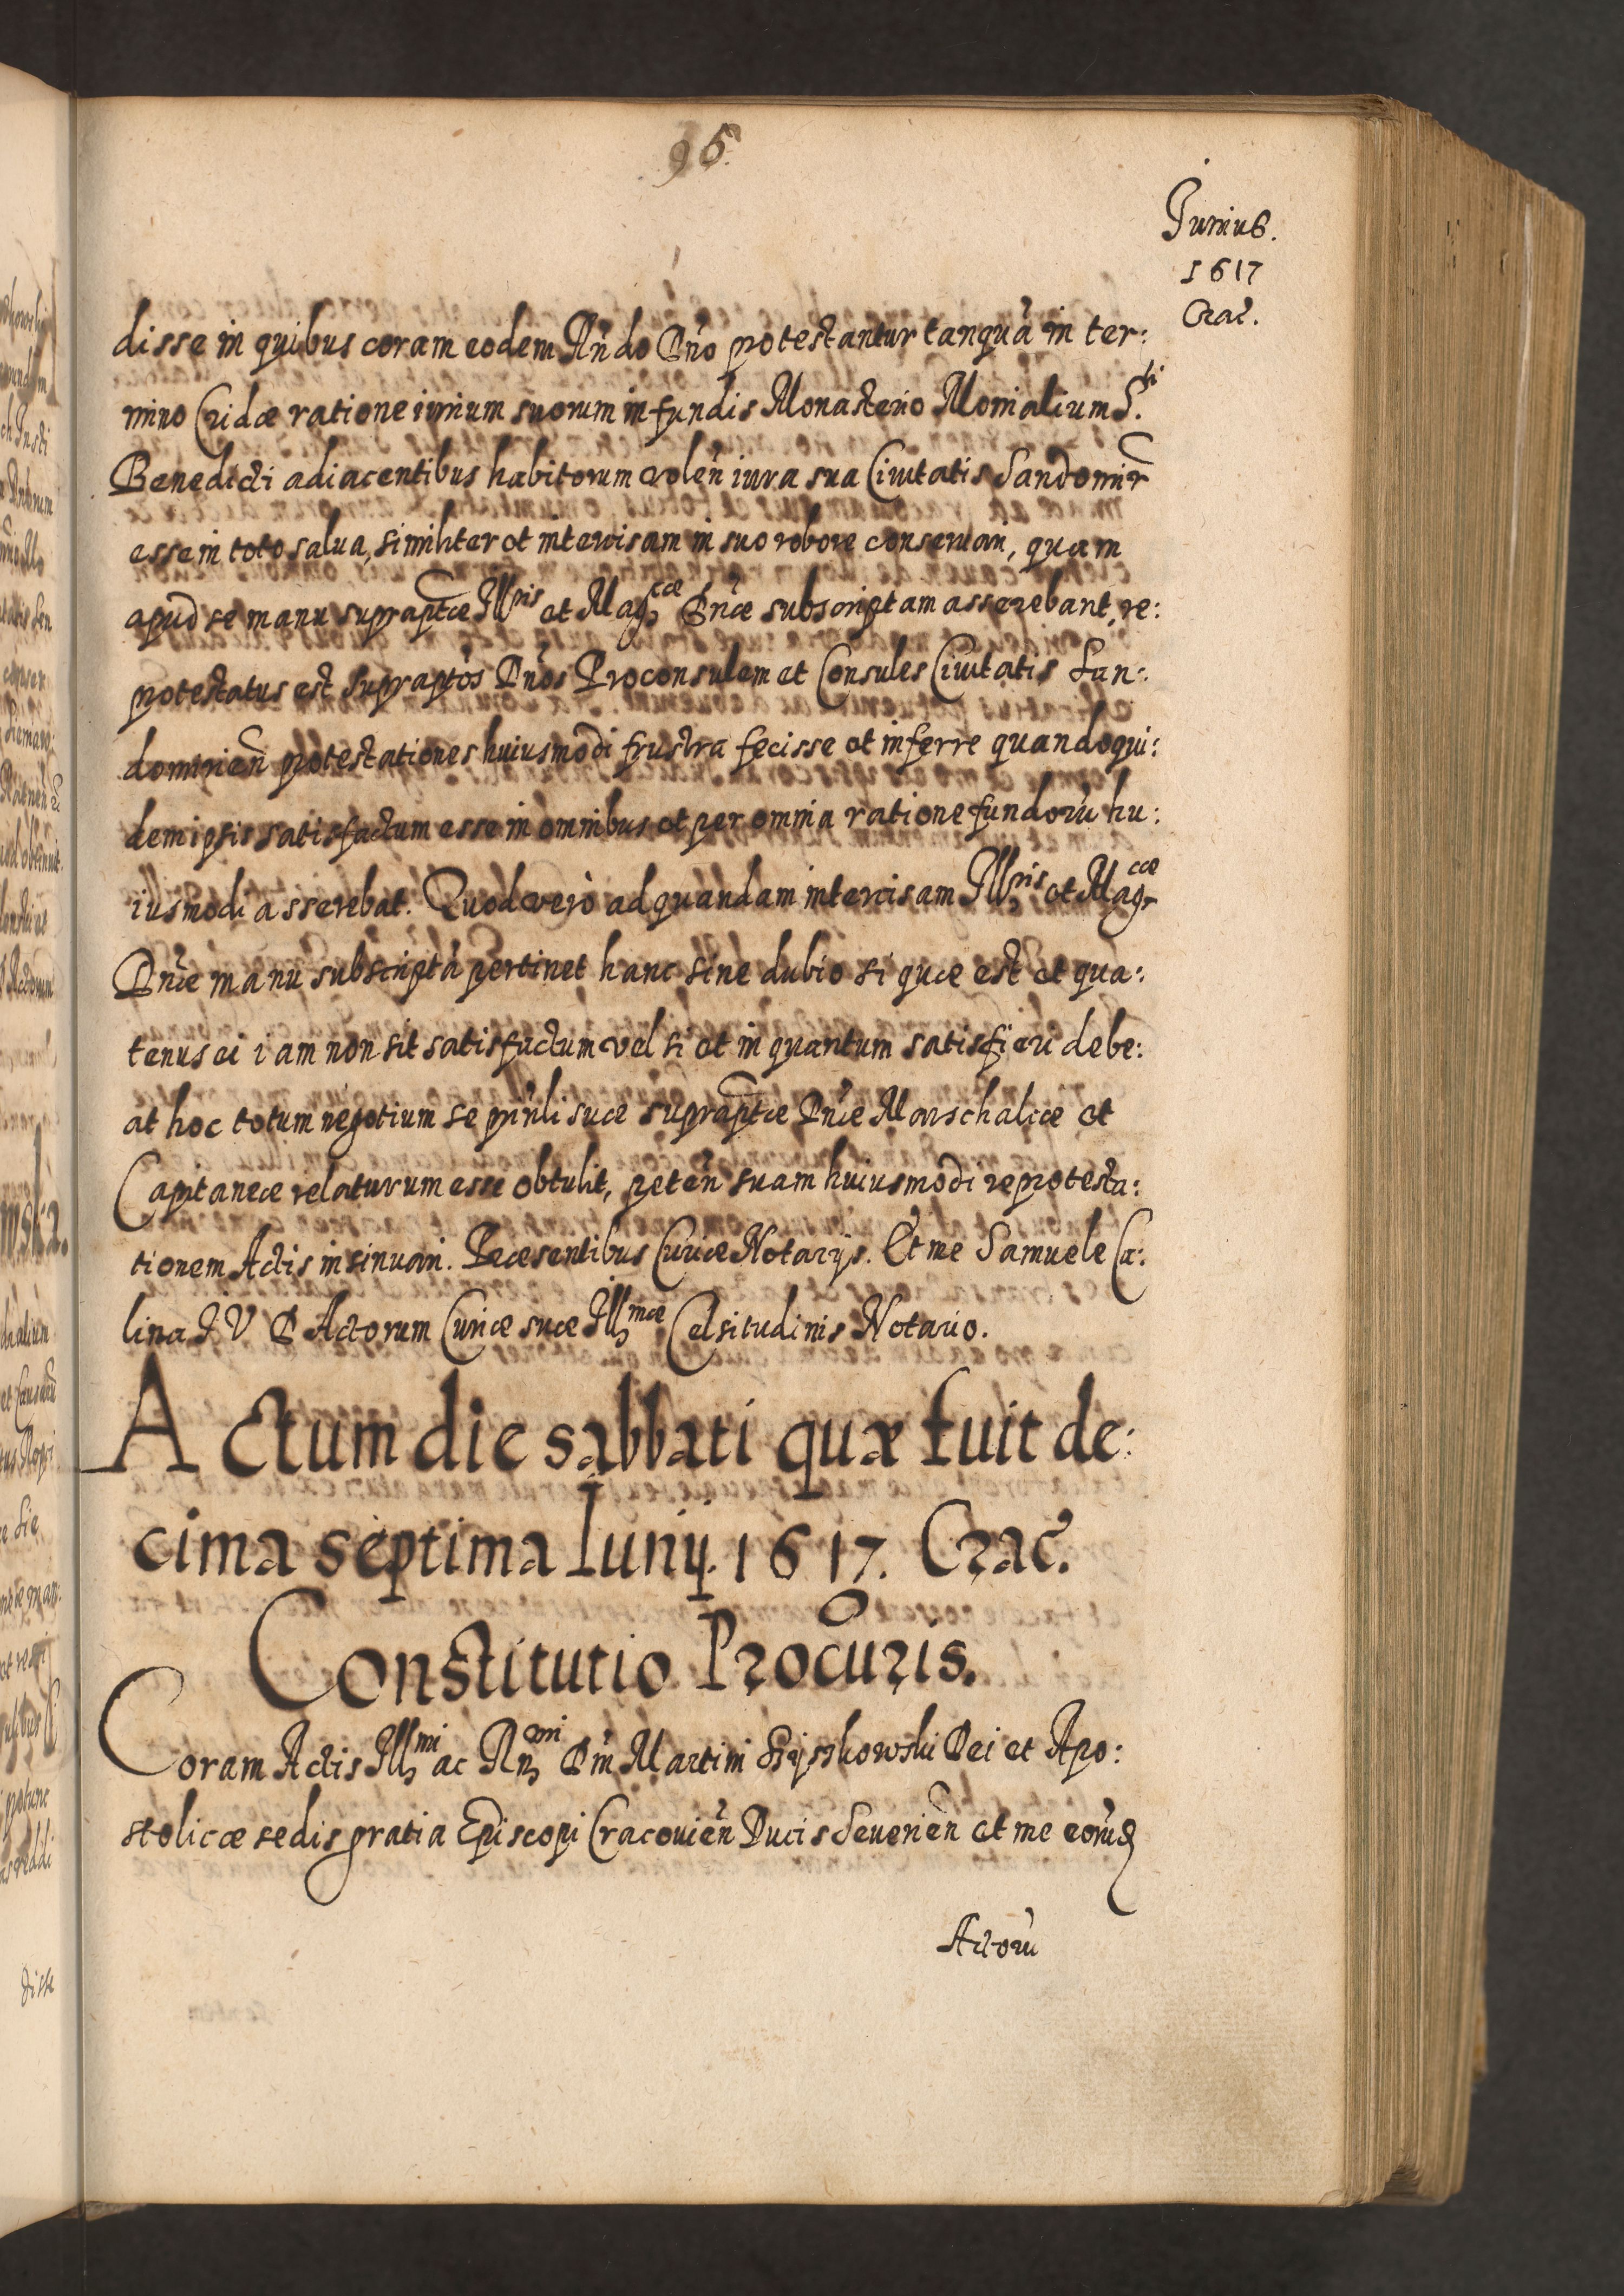 95.
Junius.
1617
Crac̃.
disse in quibus coram eodem Rñdo Dño protestantur tanquã in ter:
mino Cridæ ratione iurium suorum in fundis Monasterio Monialium S.ti
Benedicti adiacentibus habitorum volẽn iura sua Ciuitatis Sandomir̃
esse in toto salua, similiter et intercisam in suo robore conseruari, quam
apud se manu supraptæ Illris et Magcæ Dñæ subscriptam asserebant, re:
protestatus est supraptos Dños Proconsulem et Consules Ciuitatis San:
domirieñ protestationes huiusmodi frustra fecisse et inferre quandoqui:
dem ipsis satisfactum esse in omnibus et per omnia ratione fundorũ hu:
iusmodi asserebat. Quod verò ad quandam intercisam Illris et Magcæ
Dñæ manu subscriptã pertinet hanc sine dubio si quæ est et qua:
tenus ei iam non sit satisfactum vel si et in quantum satisfieri debe:
at hoc totum negotium se prñli suæ supraptæ Dñæ Marschalcæ et
Captaneæ relaturum esse obtulit, petẽn suam huiusmodi reprotesta:
tionem Actis insinuari. Præsentibus Curiæ Notarijs. Et me Samuele Ca:
lina J V D Actorum Curiæ suæ Illmæ Celsitudinis Notario.
Actum die sabbati quæ fuit de:
cima septima Iunij. 1617. Crac̃.
Constitutio Procuris.
Coram Actis Illmi ac Rñmi Dñi Martini Szyszkowski Dei et Apo:
stolicæ sedis gratia Episcopi Cracouiẽn Ducis Seueriẽn et me eorũd
Actorũ